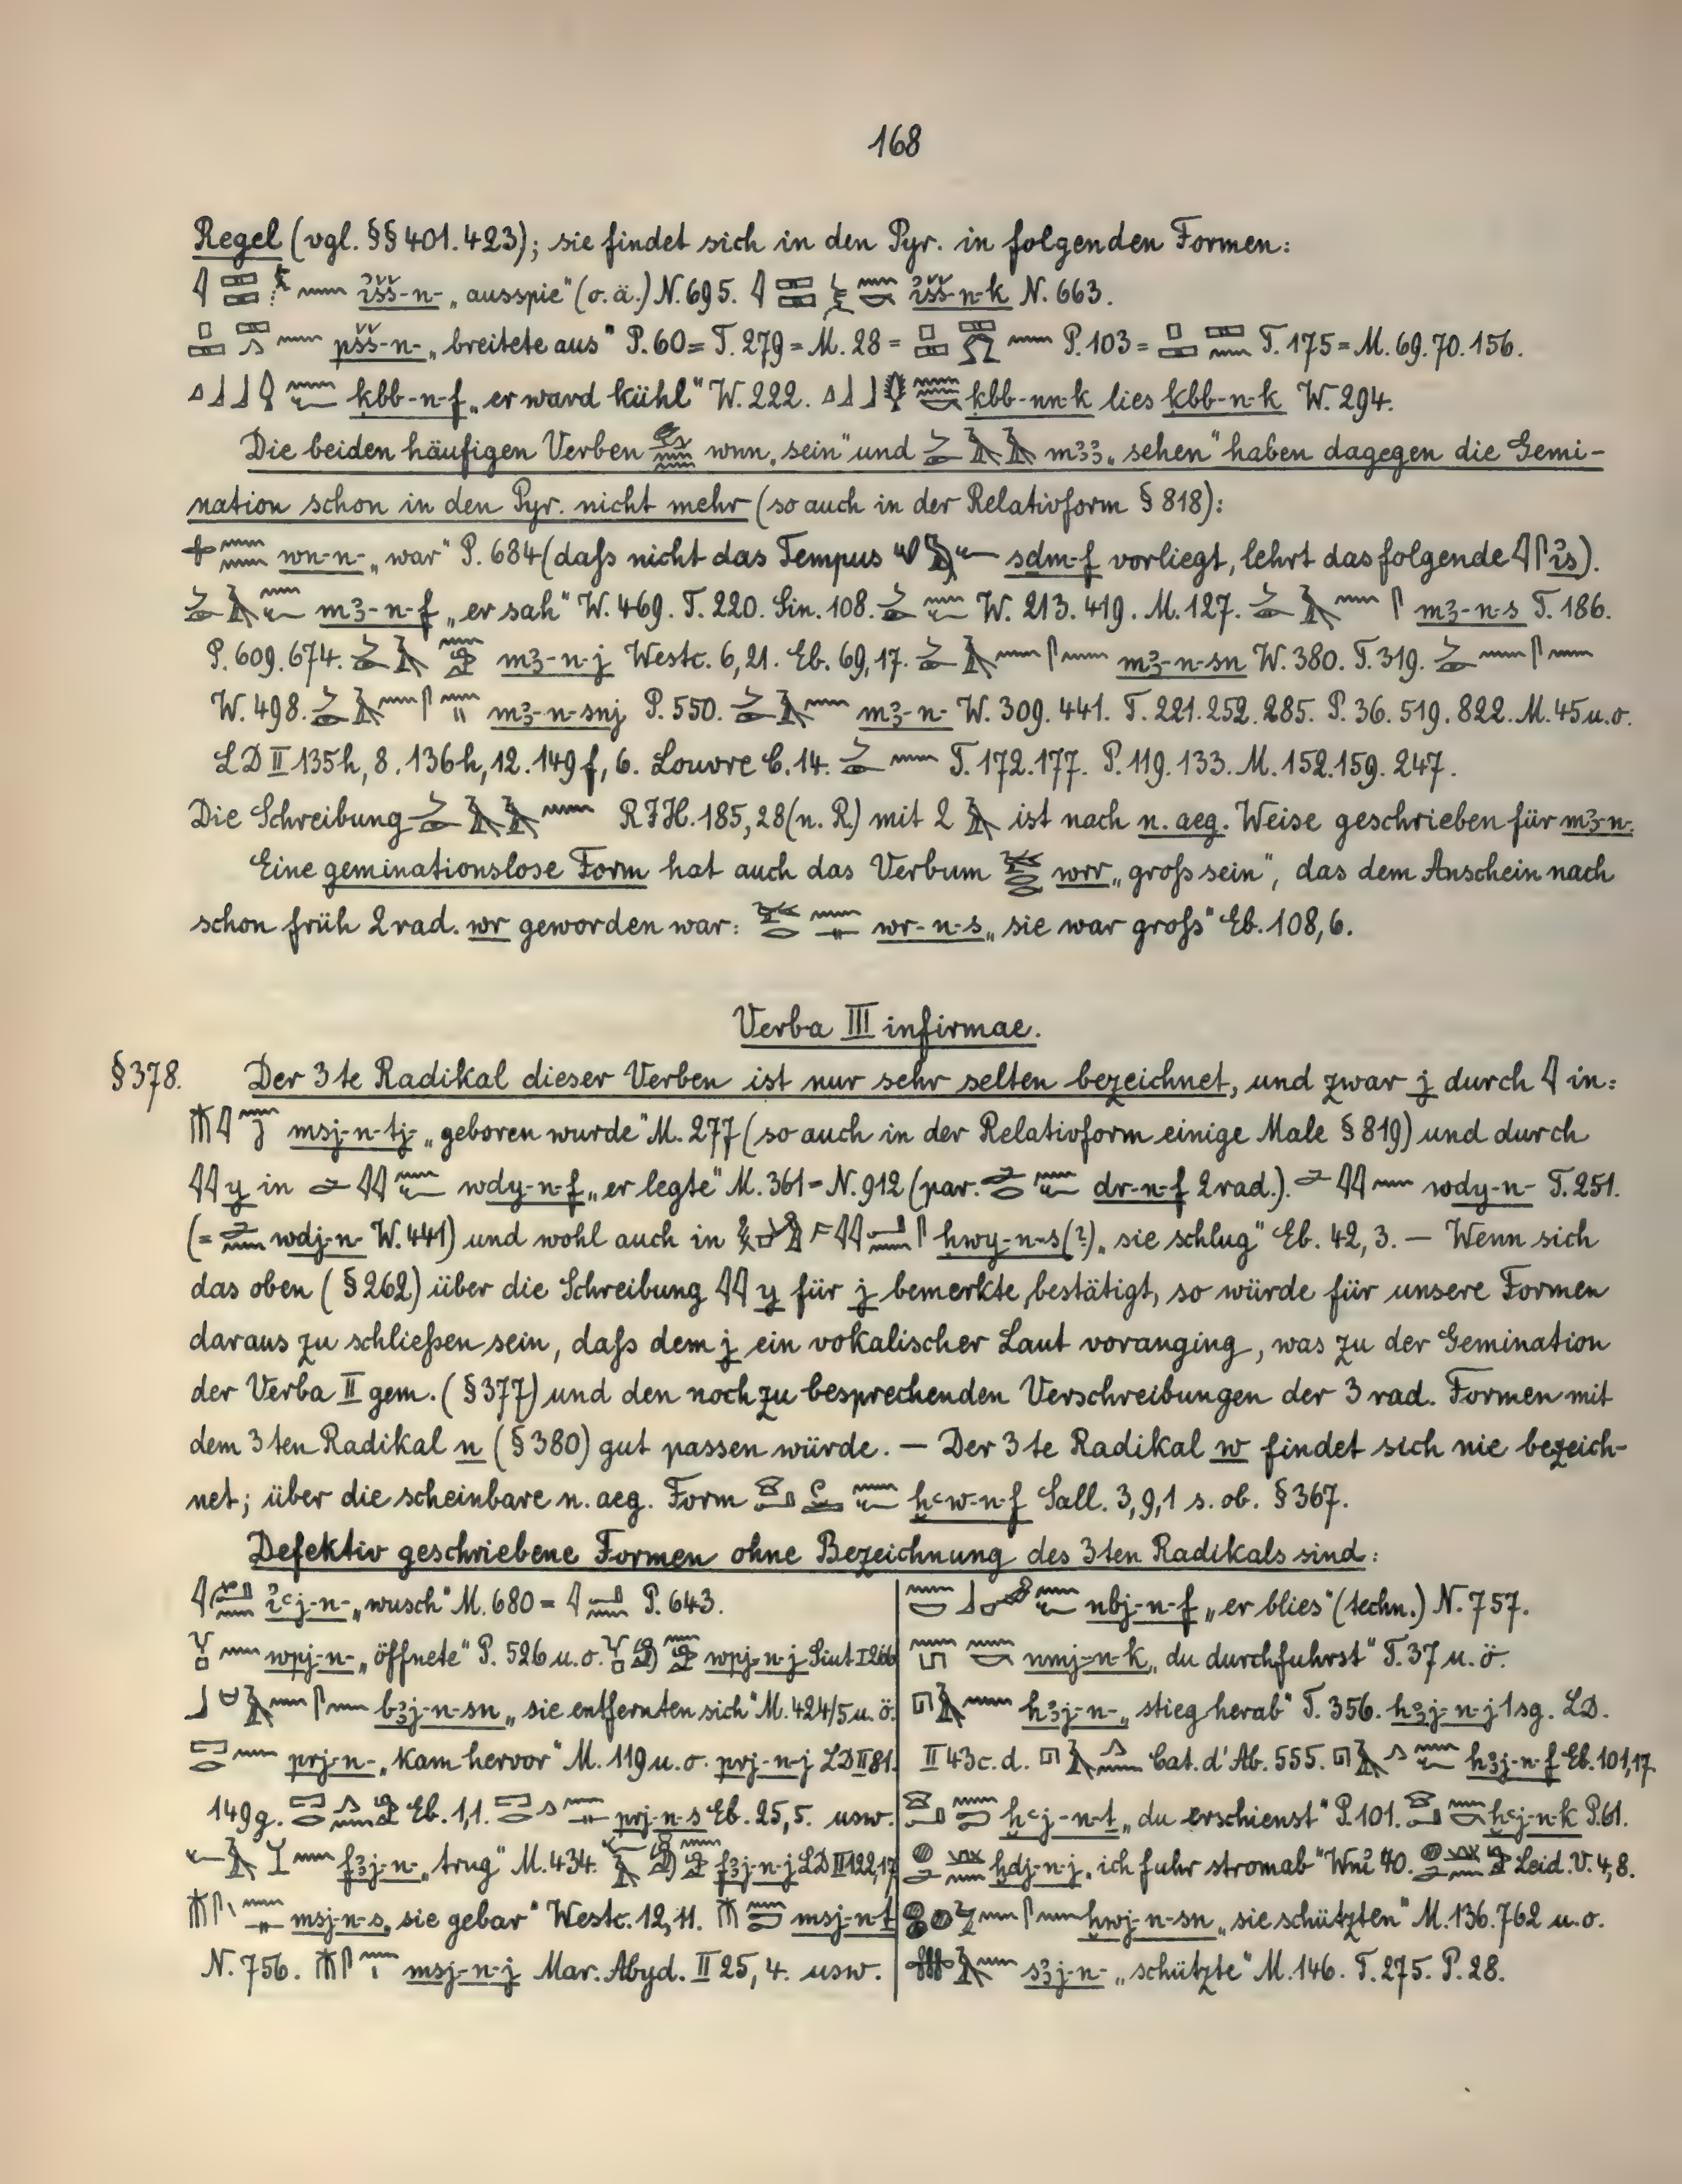 168
Regel (vgl. §§ 401. 423); sie findet sich in den Pyr. in folgenden Formen:
išš-n- „ausspie“ (o. ä.) N. 695. išš-n-k N. 663.
pšš-n- „breitete aus“ P. 60 = T. 279 = M. 28 = P. 103 = T. 175 = M. 69. 70. 156.
ḳbb-n-f „er ward kühl“ W. 222. ḳbb-nn-k lies ḳbb-n-k W. 294.
Die beiden häufigen Verben wnn „sein“ und mꜣꜣ „sehen“ haben dagegen die Gemi-
nation schon in den Pyr. nicht mehr (so auch in der Relativform § 818):
wn-n- „war“ P. 684 (daſs nicht das Tempus sḏm-f vorliegt, lehrt das folgende is).
mꜣ-n-f „er sah“ W. 469. T. 220. Sin. 108. W. 213. 419. M. 127. mꜣ-n-s T. 186.
P. 609. 674. mꜣ-n-j Westc. 6,21. Eb. 69,17. mꜣ-n-sn W. 380. T. 319.
W. 498. mꜣ-n-snj P. 550. mꜣ-n- W. 309. 441. T. 221. 252. 285. P. 36. 519. 822. M. 45 u. o.
LD II 135h, 8. 136h, 12. 149f, 6. Louvre C. 14. T. 172. 177. P. 119. 133. M. 152. 159. 247.
Die Schreibung RJH. 185, 28 (n. R.) mit 2 ist nach n. aeg. Weise geschrieben für mꜣ-n-.
Eine geminationslose Form hat auch das Verbum wrr „groſs sein“, das dem Anschein nach
schon früh 2 rad. wr geworden war: wr-n-s „sie war groſs“ Eb. 108, 6.
Verba III infirmae.
§ 378. Der 3te Radikal dieser Verben ist nur sehr selten bezeichnet, und zwar j durch in:
msj-n-tj- „geboren wurde“ M. 277 (so auch in der Relativform einige Male § 819) und durch
y in wdy-n-f „er legte“ M. 361 = N. 912 (par. dr-n-f 2 rad.). wdy-n- T. 251.
(= wdj-n- W. 441) und wohl auch in ḥwy-n-s (?) „sie schlug“ Eb. 42, 3. — Wenn sich
das oben (§ 262) über die Schreibung y für j bemerkte bestätigt, so würde für unsere Formen
daraus zu schlieſsen sein, daſs dem j ein vokalischer Laut voranging, was zu der Gemination
der Verba II gem. (§ 377) und den noch zu besprechenden Verschreibungen der 3 rad. Formen mit
dem 3ten Radikal n (§ 380) gut passen würde. — Der 3te Radikal w findet sich nie bezeich-
net; über die scheinbare n. aeg. Form ḫꜥw-n-f Sall. 3, 9, 1 s. ob. § 367.
Defektiv geschriebene Formen ohne Bezeichnung des 3ten Radikals sind:
iꜥj-n- „wusch“ M. 680 = P. 643.
wpj-n- „öffnete“ P. 526 u. o. wpj-n-j Siut I
bꜣj-n-sn „sie entfernten sich“ M. 424/5 u. ö.
prj-n- „kam hervor“ M. 119 u. o. prj-n-j LD II 81.
149g. Eb. 1,1. prj-n-s Eb. 25, 5. usw.
fꜣj-n- „trug“ M. 434. fꜣj-n-j LD II 122, 17
msj-n-s „sie gebar“ Westc. 12, 11. msj-n-ṯ
N. 756. msj-n-j Mar. Abyd. II 25, 4. usw.
nbj-n-f „er blies“ (techn.) N. 757.
nmj-n-k „du durchfuhrst“ T. 37 u. ö.
hꜣj-n- „stieg herab“ T. 356. hꜣj-n-j 1 sg. LD.
II 43c. d. Cat. d'Ab. 555. hꜣj-n-f Eb. 101, 17
ḫꜥj-n-ṯ „du erschienst“ P. 101. ḫꜥj-n-k P. 61.
ḫdj-n-j „ich fuhr stromab“ Wni 40. Leid. V. 4, 8.
ḫwj-n-sn „sie schützten“ M. 136. 762 u. o.
sꜣj-n- „schützte“ M. 146. T. 275. P. 28.